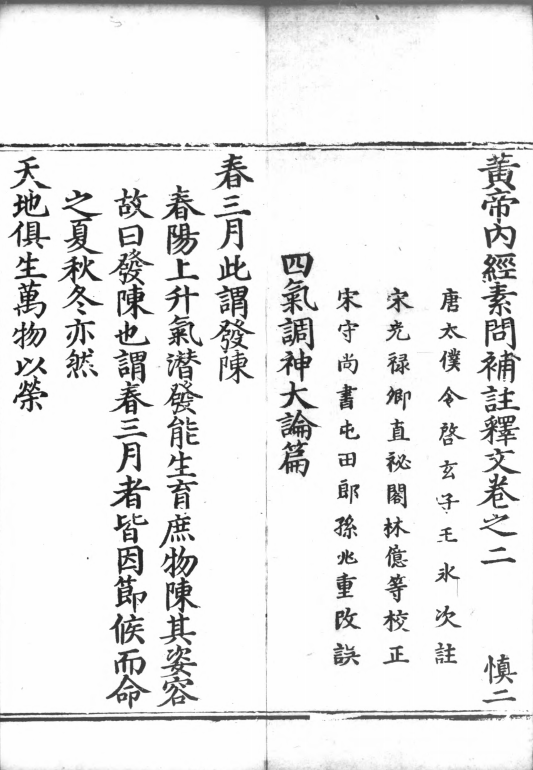 黃帝內經素問補註釋文卷之二 慎二
唐太僕令啓玄子王氷次註
宋光禄卿直祕閣林億等校正
宋守尚書屯田郎孫兆重改誤
四氣調神大論篇
春三月此謂發陳
春陽上升氣潛發能生育庶物陳其姿容
故曰發陳也謂春三月者皆因節候而命
之夏秋冬亦然
天地俱生萬物以榮